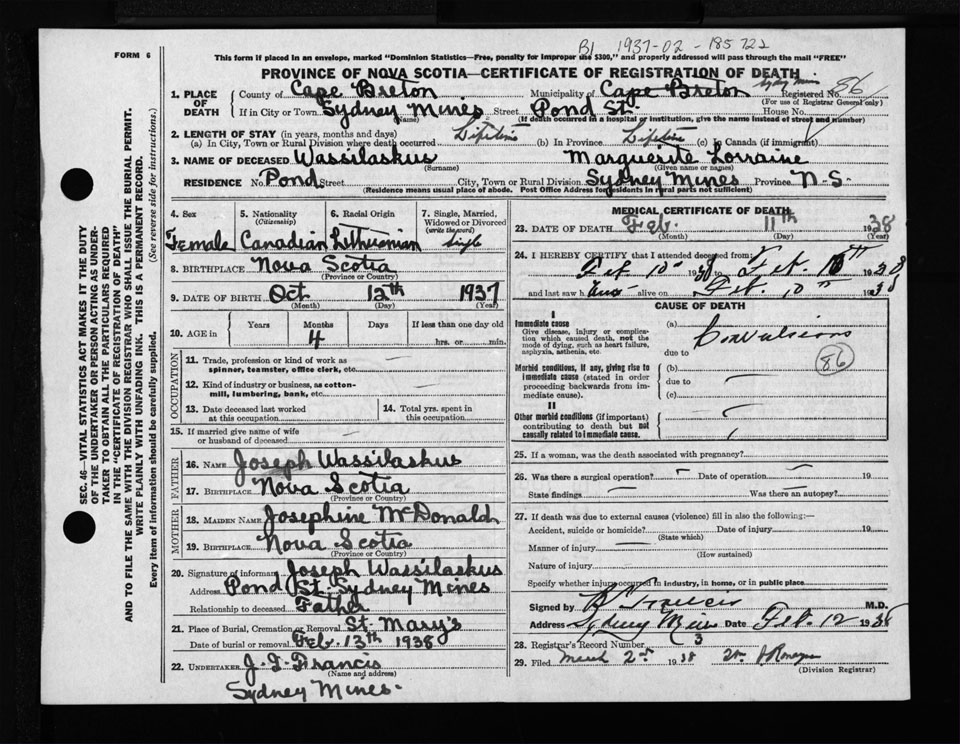 B1 1937-02-185722
FORM 6
This form if placed in an envelope, marked "Dominion Statistics—Free, penalty for improper use $300," and properly addressed will pass through the mail "FREE"
PROVINCE OF NOVA SCOTIA—CERTIFICATE OF REGISTRATION OF DEATH
1. PLACE OF DEATH
County of Cape Breton Municipality of Cape Breton Sydney Mines Registered No. 86
(For use of Registrar General only)
If in City or Town Sydney Mines (Name) Street Pond St. House No.
(If death occurred in a hospital or institution, give the name instead of street and number)
2. LENGTH OF STAY (in years, months and days)
(a) In City, Town or Rural Division where death occurred Lifetime (b) In Province Lifetime (c) in Canada (if immigrant)
3. NAME OF DECEASED Wassilaskus Marguerite Lorraine
(Surname) (Given name or names)
RESIDENCE No. Pond Street City, Town or Rural Division Sydney Mines Province N.S.
(Residence means usual place of abode. Post Office Address for residents in rural parts not sufficient)
4. Sex
Female
5. Nationality (Citizenship)
Canadian
6. Racial Origin
Lithuanian
7. Single, Married, Widowed or Divorced (write the word)
Single
8. BIRTHPLACE Nova Scotia
(Province or Country)
9. DATE OF BIRTH Oct 12th 1937
(Month) (Day) (Year)
10. AGE in Years Months 4 Days If less than one day old hrs. or min.
OCCUPATION
11. Trade, profession or kind of work as spinner, teamster, office clerk, etc. —
12. Kind of industry or business, as cotton-mill, lumbering, bank, etc. —
13. Date deceased last worked at this occupation
14. Total yrs. spent in this occupation
15. If married give name of wife or husband of deceased —
FATHER
16. NAME Joseph Wassilaskus
17. BIRTHPLACE Nova Scotia
(Province or Country)
MOTHER
18. MAIDEN NAME Josephine McDonald
19. BIRTHPLACE Nova Scotia
(Province or Country)
20. Signature of informant Joseph Wassilaskus
Address Pond St. Sydney Mines
Relationship to deceased Father
21. Place of Burial, Cremation or Removal St. Mary's
Date of burial or removal Feb. 13th 1938
22. UNDERTAKER J. F. Francis
(Name and address)
Sydney Mines.
MEDICAL CERTIFICATE OF DEATH
23. DATE OF DEATH Feb. 11th 1938
(Month) (Day) (Year)
24. I HEREBY CERTIFY that I attended deceased from:
Feb. 10th 1938 to Feb. 10th 1938
and last saw her alive on Feb. 10th 1938
CAUSE OF DEATH
I
Immediate cause
Give disease, injury or complication which caused death, not the mode of dying, such as heart failure, asphyxia, asthenia, etc.
(a) Convulsions
due to
Morbid conditions, if any, giving rise to immediate cause (stated in order proceeding backwards from immediate cause).
(b) — 86
due to —
(c)
II
Other morbid conditions (if important) contributing to death but not causally related to immediate cause.
25. If a woman, was the death associated with pregnancy?
26. Was there a surgical operation? — Date of operation — 19
State findings — Was there an autopsy?
27. If death was due to external causes (violence) fill in also the following:—
Accident, suicide or homicide? Date of injury 19
(State which)
Manner of injury —
(How sustained)
Nature of injury
Specify whether injury occurred in industry, in home, or in public place
Signed by Francis M.D.
Address Sydney Mines Date Feb. 12 1938
28. Registrar's Record Number 3
29. Filed March 2nd 1938
(Division Registrar)
SEC. 46—VITAL STATISTICS ACT MAKES IT THE DUTY
OF THE UNDERTAKER OR PERSON ACTING AS UNDER-
TAKER TO OBTAIN ALL THE PARTICULARS REQUIRED
IN THE "CERTIFICATE OF REGISTRATION OF DEATH"
AND TO FILE THE SAME WITH THE DIVISION REGISTRAR WHO SHALL ISSUE THE BURIAL PERMIT.
WRITE PLAINLY WITH UNFADING INK. THIS IS A PERMANENT RECORD.
Every item of information should be carefully supplied. (See reverse side for instructions.)